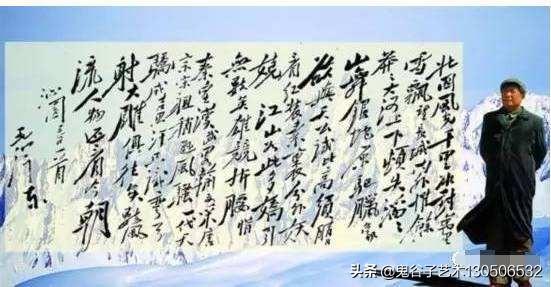 北国风光千里冰封万里
雪飘望长城内外惟餘
莽莽大河上下顿失滔滔
山舞银蛇原驰腊象
欲与天公试比高须晴日
看红装素裹分外妖
娆江山如此多娇引
无数英雄競折腰惜
秦皇汉武略输文采唐
宗宋祖稍逊风骚一代天
骄成吉思汗只识弯弓
射大雕俱往矣数风
流人物还看今朝
沁园春一首
毛泽东
头条 @鬼谷子艺术130506532